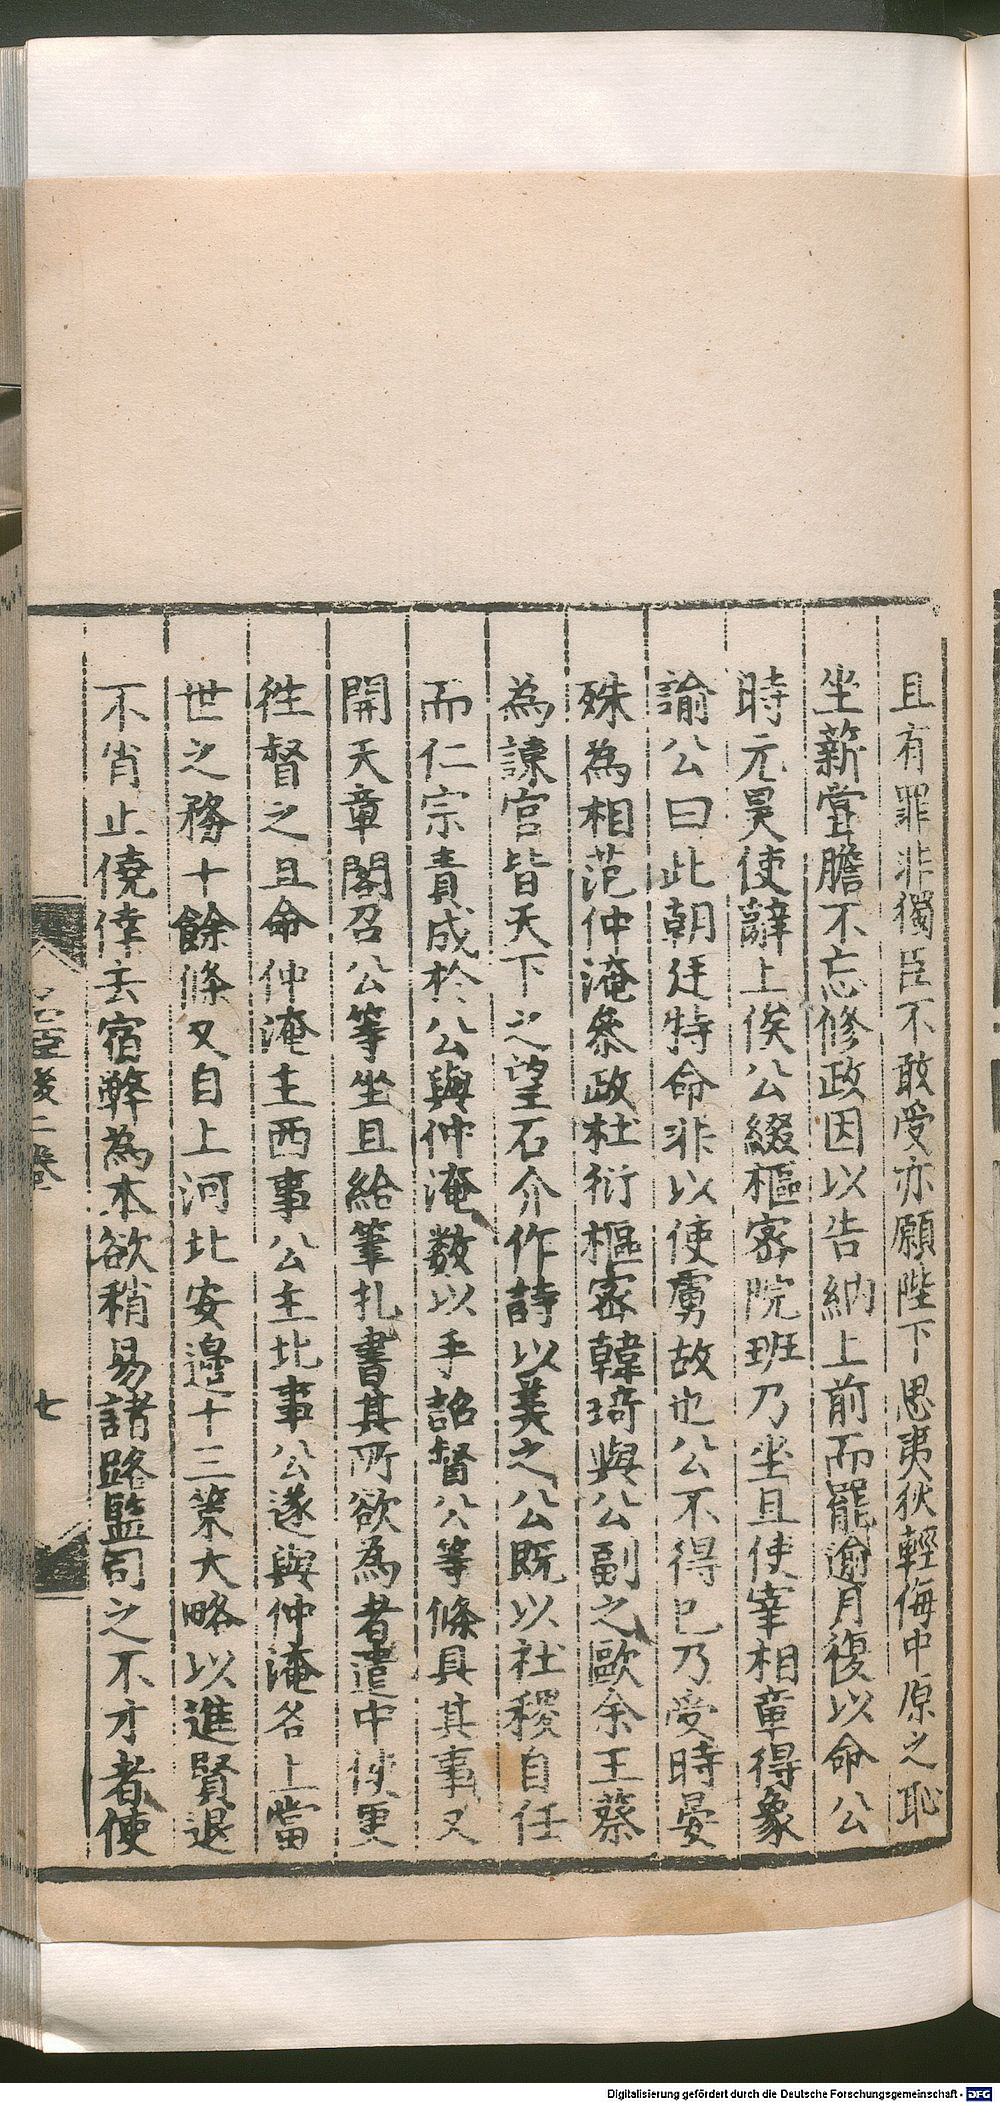 且有罪非獨臣不敢受亦願陛下思夷狄輕侮中原之恥
坐薪甞膽不忘修政因以告納上前而罷逾月復以命公
時元昊使辭上俟公綴樞密院班乃坐且使宰相章得象
諭公曰此朝廷特命非以使虜故也公不得已乃受時晏
殊為相范仲淹叅政杜衍樞密韓琦與公副之歐余王蔡
為諫官皆天下之望石介作詩以美之公既以社稷自任
而仁宗責成於公與仲淹数以手詔督公等條具其事又
開天章閣召公等坐且給筆札書其所欲為者遣中使更
徃督之且命仲淹主西事公主北事公遂與仲淹各上當
世之務十餘條又自上河北安邉十三策大略以進賢退
不肖止僥倖去宿弊為本欲稍易諸路監司之不才者使
名臣後二卷
七
Digitalisierung gefördert durch die Deutsche Forschungsgemeinschaft - DFG